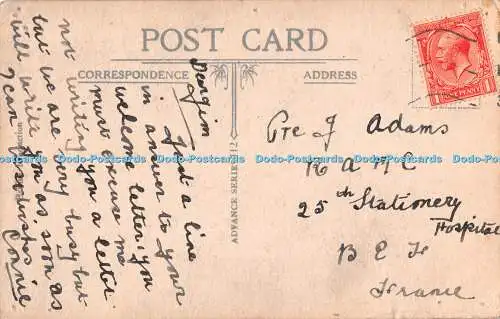 POST CARD
CORRESPONDENCE
ADDRESS
Dear Jim
Just a line
in answer to your
welcome letter, you
must excuse me
not writing you a letter
but we are very busy but
will write you as soon as
I can
Best wishes
Connie
ADVANCE SERIES
Pte J Adams
R A M C
25th Stationery
Hospital
B E F
France
ONE PENNY
Dodo-Postcards Dodo-Postcards Dodo-Postcards Dodo-Postcards Dodo-Postcards Dodo-Postcards